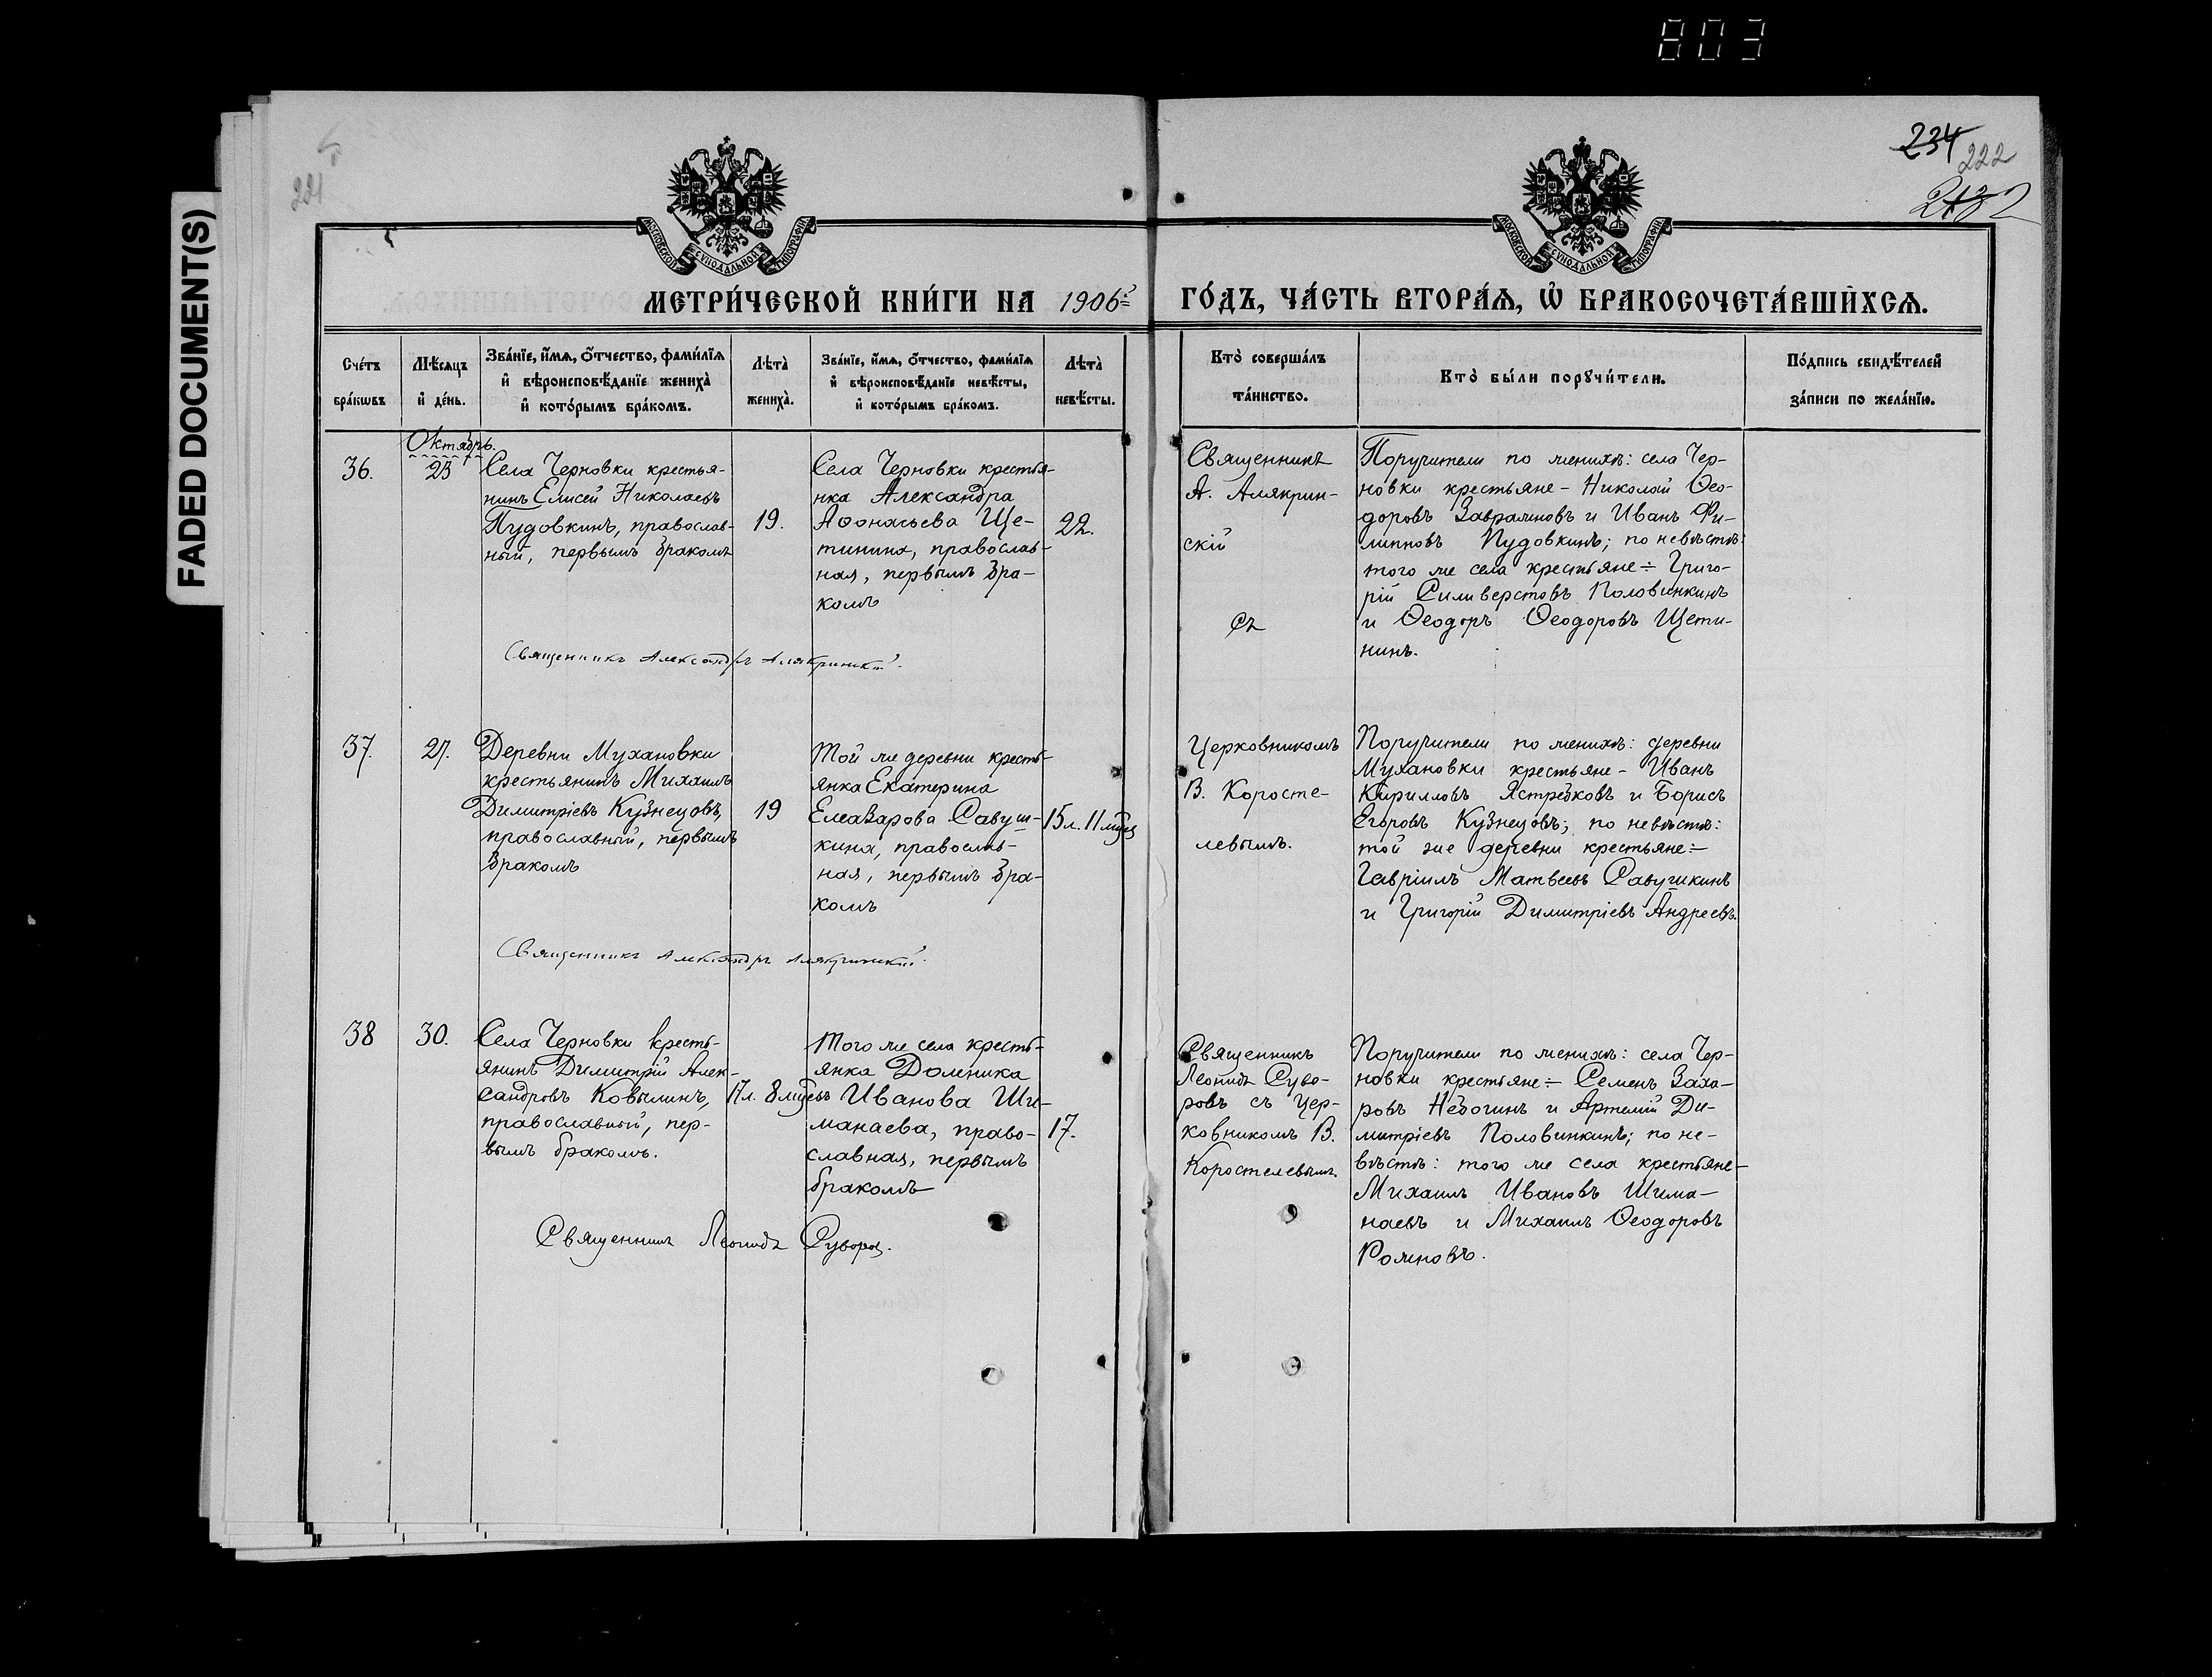 803
FADED DOCUMENT(S)
221
234
222
МОСКОВСКОЙ СѴНОДАЛЬНОЙ ТИПОГРАФІИ
МОСКОВСКОЙ СѴНОДАЛЬНОЙ ТИПОГРАФІИ
МЕТРИ́ЧЕСКОЙ КНИ́ГИ НА 1906 ГО́ДЪ, ЧА́СТЬ ВТОРА́Ѧ, Ѡ҆ БРАКОСОЧЕТА́ВШИХСѦ.
Сче́тъ
бра́кѡвъ
Мѣ́сѧцъ
и҆ де́нь.
Зва́нїе, и҆́мѧ, ѻ҆́тчество, фами́лїѧ
и҆ вѣроисповѣ́данїе жениха̀
и҆ кото́рымъ бра́комъ.
Лѣ́та̀
жениха̀.
Зва́нїе, и҆́мѧ, ѻ҆́тчество, фами́лїѧ
и҆ вѣроисповѣ́данїе невѣ́сты,
и҆ кото́рымъ бра́комъ.
Лѣ́та̀
невѣ́сты.
Кто̀ соверша́лъ
та́инство.
Кто̀ бы́ли порꙋчи́тели.
По́дпись свидѣ́телей
за́писи по жела́нїю.
36.
Октябрь
23
Села Черновки крестья-
нинъ Елисей Николаевъ
Пудовкинъ, православ-
ный, первымъ бракомъ
19.
Села Черновки крестья-
нка Александра
Аѳонасьева Ще-
тинина, православ-
ная, первымъ бра-
комъ
22.
Священникъ
А. Алякрин-
скій
съ
Поручители по женихѣ: села Чер-
новки крестьяне - Николай Ѳео-
доровъ Завражновъ и Иванъ Фи-
липповъ Пудовкинъ; по невѣстѣ:
того же села крестьяне - Григо-
рій Силиверстовъ Половинкинъ
и Ѳеодоръ Ѳеодоровъ Щети-
нинъ.
Священникъ Александръ Алякринскій.
37.
27.
Деревни Мухановки
крестьянинъ Михаилъ
Димитріевъ Кузнецовъ,
православный, первымъ
бракомъ
19
Той же деревни кресть-
янка Екатерина
Елеазарова Савуш-
кина, православ-
ная, первымъ бра-
комъ
15 л. 11 мцев
Церковникомъ
В. Коросте-
левымъ.
Поручители по женихѣ: деревни
Мухановки крестьяне - Иванъ
Кирилловъ Ястребковъ и Борисъ
Егоровъ Кузнецовъ; по невѣстѣ:
той же деревни крестьяне -
Гавріилъ Матвеевъ Савушкинъ
и Григорій Димитріевъ Андреевъ.
Священникъ Александръ Алякринскій.
38
30.
Села Черновки кресть-
янинъ Димитрій Алек-
сандровъ Ковылинъ,
православный, пер-
вымъ бракомъ.
17 л. 8 мцевъ
Того же села кресть-
янка Домника
Иванова Ши-
манаева, право-
славная, первымъ
бракомъ
17.
Священникъ
Леонидъ Суво-
ровъ съ цер-
ковникомъ В.
Коростелевымъ.
Поручители по женихѣ: села Чер-
новки крестьяне - Семенъ Заха-
ровъ Небогинъ и Артемій Ди-
митріевъ Половинкинъ; по не-
вѣстѣ: того же села крестьяне -
Михаилъ Ивановъ Шима-
наевъ и Михаилъ Ѳеодоровъ
Рожновъ.
Священникъ Леонидъ Суворов.